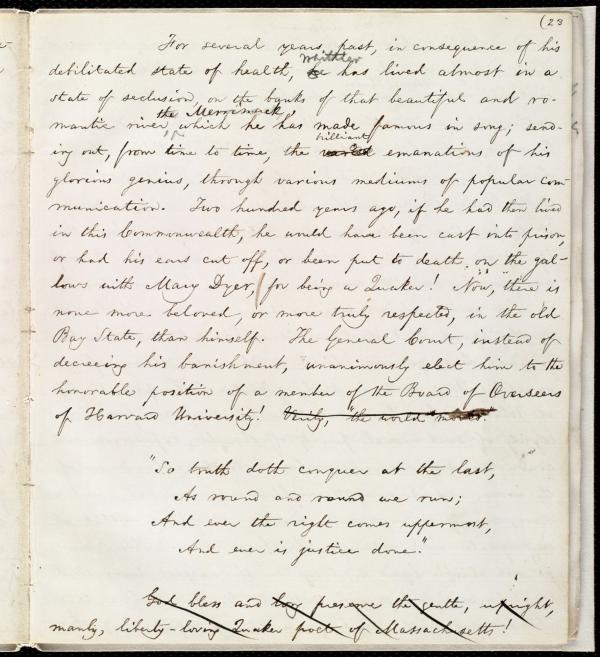 (23
For several years past, in consequence of his
Whittier
debilitated state of health, he has lived almost in a
state of seclusion, on the banks of that beautiful and ro-
the Merrimack,
mantic river, which he has made famous in song; send-
brilliant
ing out, from time to time, the varied emanations of his
glorious genius, through various mediums of popular com-
munication. Two hundred years ago, if he had then lived
in this Commonwealth, he would have been cast into prison,
or had his ears cut off, or been put to death on the gal-
lows with Mary Dyer, for being a Quaker! Now, there is
none more beloved, or more truly respected, in the old
Bay State, than himself. The General Court, instead of
decreeing his banishment, unanimously elect him to the
honorable position of a member of the Board of Overseers
of Harvard University! Verily, "the world moves."
"So truth doth conquer at the last,
As round and round we run;
And ever the right comes uppermost,
And ever is justice done."
God bless and long preserve the gentle, upright,
manly, liberty-loving Quaker poet of Massachusetts!